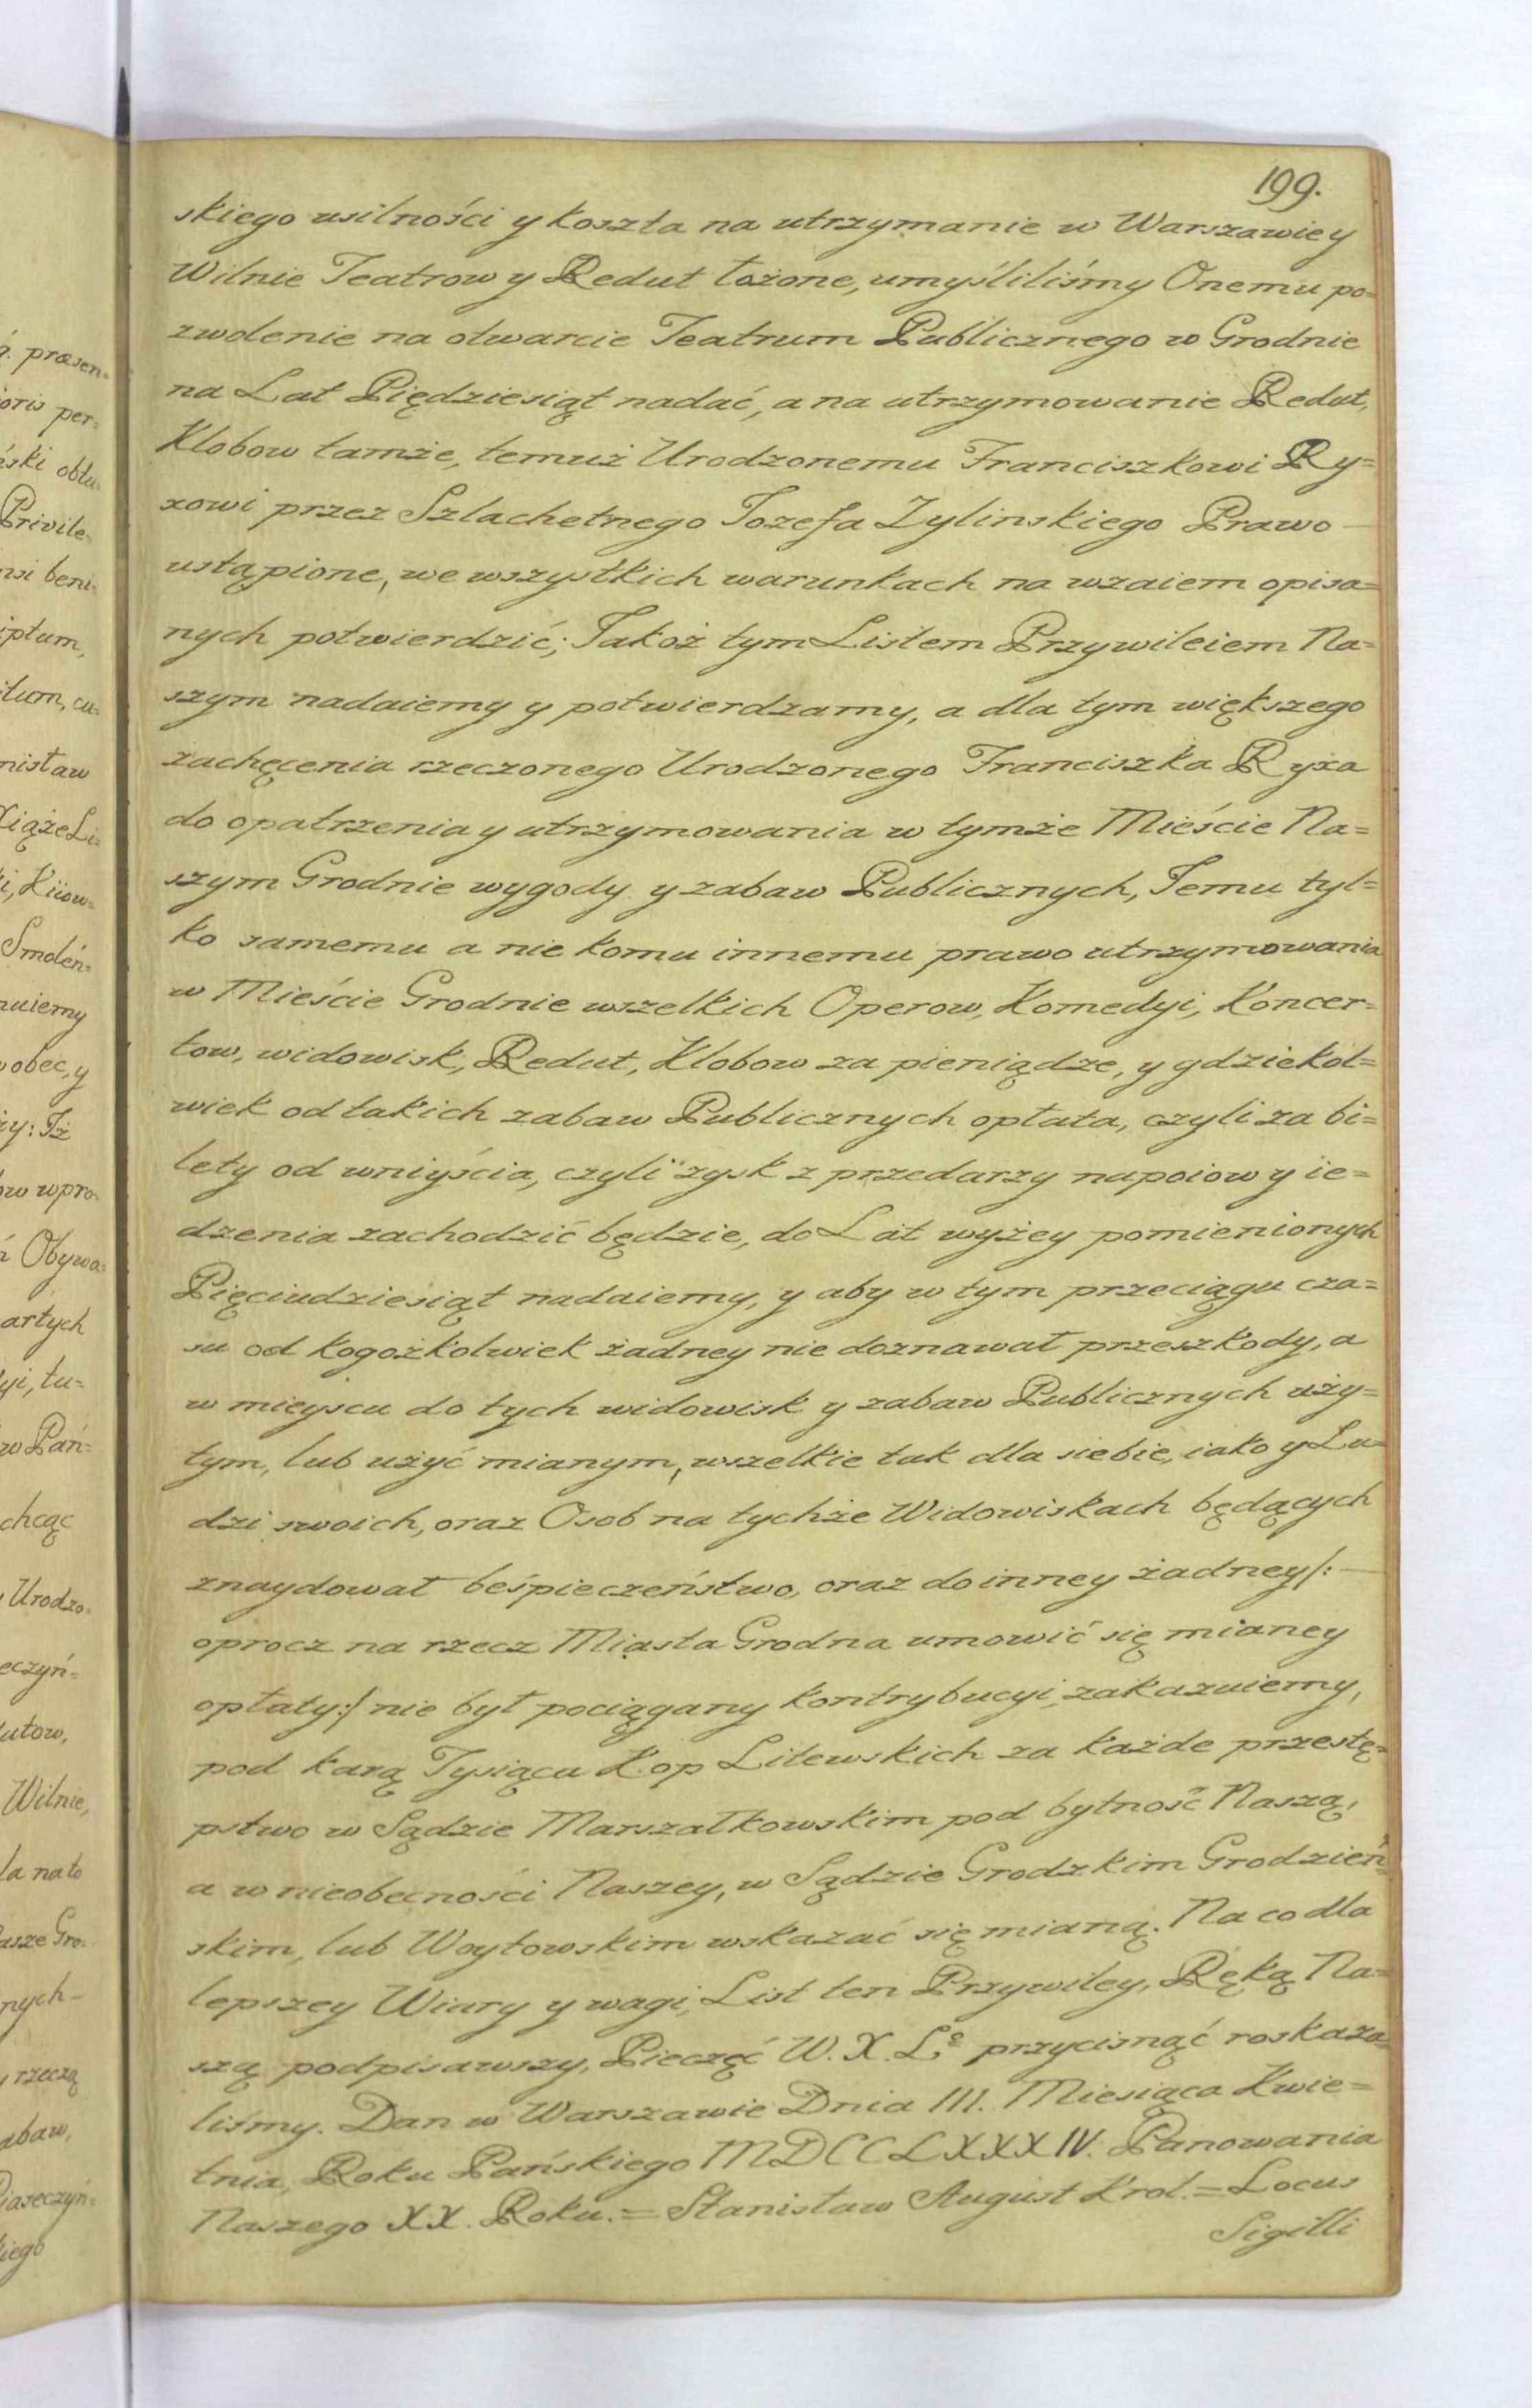 199.
skiego usilności y koszta na utrzymanie w Warszawie y
Wilnie Teatrow y Redut łożone, umyśliliśmy Onemu po=
zwolenie na otwarcie Teatrum Publicznego w Grodnie
na Lat Pięдziesiąt nadać, a na utrzymowanie Redut,
Klobow tamże, temuż Urodzonemu Franciszkowi Ry=
xowi przez Szlachetnego Jozefa Zylinskiego Prawo —
ustąpione, we wszystkich warunkach na wzaiem opisa=
nych potwierdzić; Jakoż tym Listem Przywileiem Na=
szym nadaiemy y potwierdzamy, a dla tym większego
zachęcenia rzeczonego Urodzonego Franciszka Ryxa
do opatrzenia y utrzymowania w tymże Mieście Na=
szym Grodnie wygody y zabaw Publicznych, Temu tyl=
ko samemu a nie komu innemu prawo utrzymowania
w Mieście Grodnie wszelkich Operow, Komedyi, Koncer=
tow, widowisk, Redut, Klobow za pieniądze, y gdziekol=
wiek od takich zabaw Publicznych opłata, czyli za bi=
lety od wniyścia, czyli zysk z przedarzy napoiow y ie=
dzenia zachodzić będzie, do Lat wyżey pomienionych
Pięciudziesiąt nadaiemy, y aby w tym przeciągu cza=
su od kogożkolwiek żadney nie doznawał przeszkody, a
w mieyscu do tych widowisk y zabaw Publicznych uży=
tym, lub użyć mianym, wszelkie tak dla siebie, iako y Lu=
dzi swoich, oraz Osob na tychże Widowiskach będących
znaydował beśpieczeństwo, oraz do inney żadney /: —
oprocz na rzecz Miasta Grodna umowić się mianey
opłaty :/ nie był pociągany kontrybucyi, zakazuiemy,
pod karą Tysiąca Kop Litewskich za każde przestę=
pstwo w Sądzie Marszałkowskim pod bytność Naszą,
a w nieobecności Naszey, w Sądzie Grodzkim Grodzień=
skim, lub Woytowskim wskazać się mianą. Na co dla
lepszey Wiary y wagi, List ten Przywiley, Ręką Na=
szą podpisawszy, Pieczęć W. X. Lº przycisnąć roskaza=
liśmy. Dan w Warszawie Dnia III. Miesiąca Kwie=
tnia, Roku Pańskiego MDCCLXXXIV. Panowania
Naszego XX. Roku. = Stanisław August Krol. = Locus
Sigilli